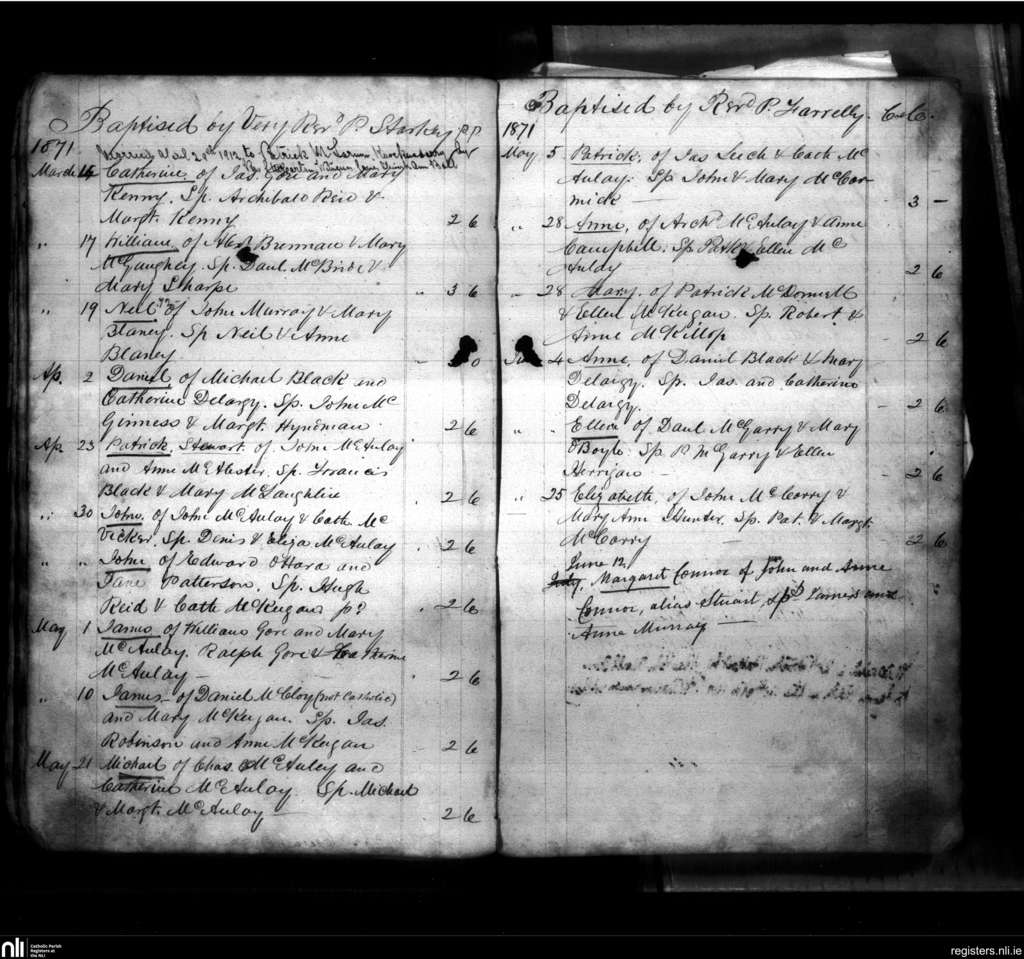 Baptised by Very Revd P. Starkey P.P.
1871
March 14 Catherine of Jas Gore and Mary
Kenny. Sp. Archibald Reid &
Margt. Kenny 2 6
" 17 William of Brennan & Mary
McGaughey. Sp. Danl McBride &
Mary Sharpe " 3 6
" 19 Neil of John Murray & Mary
Blaney. Sp Neil & Anne
Blaney 0
Ap. 2 Daniel of Michael Black and
Catherine Delargy. Sp. John Mc
Ginness & Margt. Hyndman 2 6
Ap. 23 Patrick Stewart of John McAulay
and Anne McAlister. Sp. Francis
Black & Mary McLaughlin 2 6
" 30 John. of John McAulay & Cath. Mc
Vicker. Sp Denis & Eliza McAulay 2 6
" " John of Edward O'Hara and
Jane Patterson. Sp. Hugh
Reid & Cath McKeegan 2 6
May 1 James of William Gore and Mary
McAulay. Ralph Gore & Catherine
McAulay 2 6
" 10 James of Daniel McCloy (not Catholic)
and Mary McKeegan. Sp. Jas.
Robinson and Anne McKeegan 2 6
May 21 Michael of Chas. McAuley and
Catherine McAulay. Sp. Michael
& Margt. McAulay 2 6
Baptised by Revd P. Farrelly. C.C.
1871
May 5 Patrick, of Jas Leech & Cath Mc
Aulay. Sp John & Mary McCor
mick 3 —
" 28 Anne, of Archd McAulay & Anne
Campbell. Sp Patk & Ellen Mc
Aulay 2 6
" 28 Mary. of Patrick McDonnell
& Ellen McKeegan. Sp. Robert &
Anne McKillop 2 6
4 Anne of Daniel Black & Mary
Delargy. Sp. Jas. and Catherine
Delargy. 2 6
" " Ellen of Danl McGarry & Mary
O'Boyle. Sp P. McGarry & Ellen
Kerrigan 2 6
" 25 Elizabeth. of John McCorry &
Mary Ann Hunter. Sp. Pat. & Margt.
McCorry 2 6
June 12
July. Margaret Connor of John and Anne
Connor, alias Stuart, and
Anne Murray
nli
Catholic Parish
Registers at
the NLI
registers.nli.ie